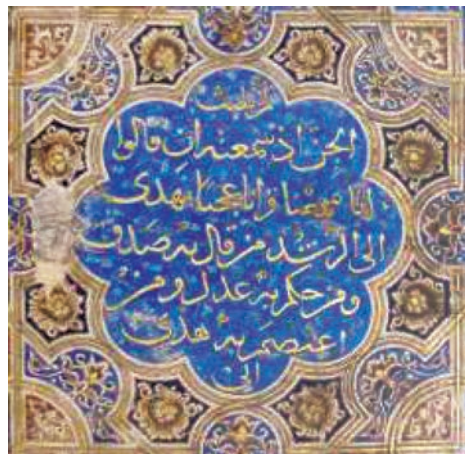 لم يلبث
الجن اذ سمعته ان قالوا
انا سمعنا قرانا عجبا يهدى
الى الرشد من قال به صدق
ومن حكم به عدل ومن
اعتصم به هدى
الى